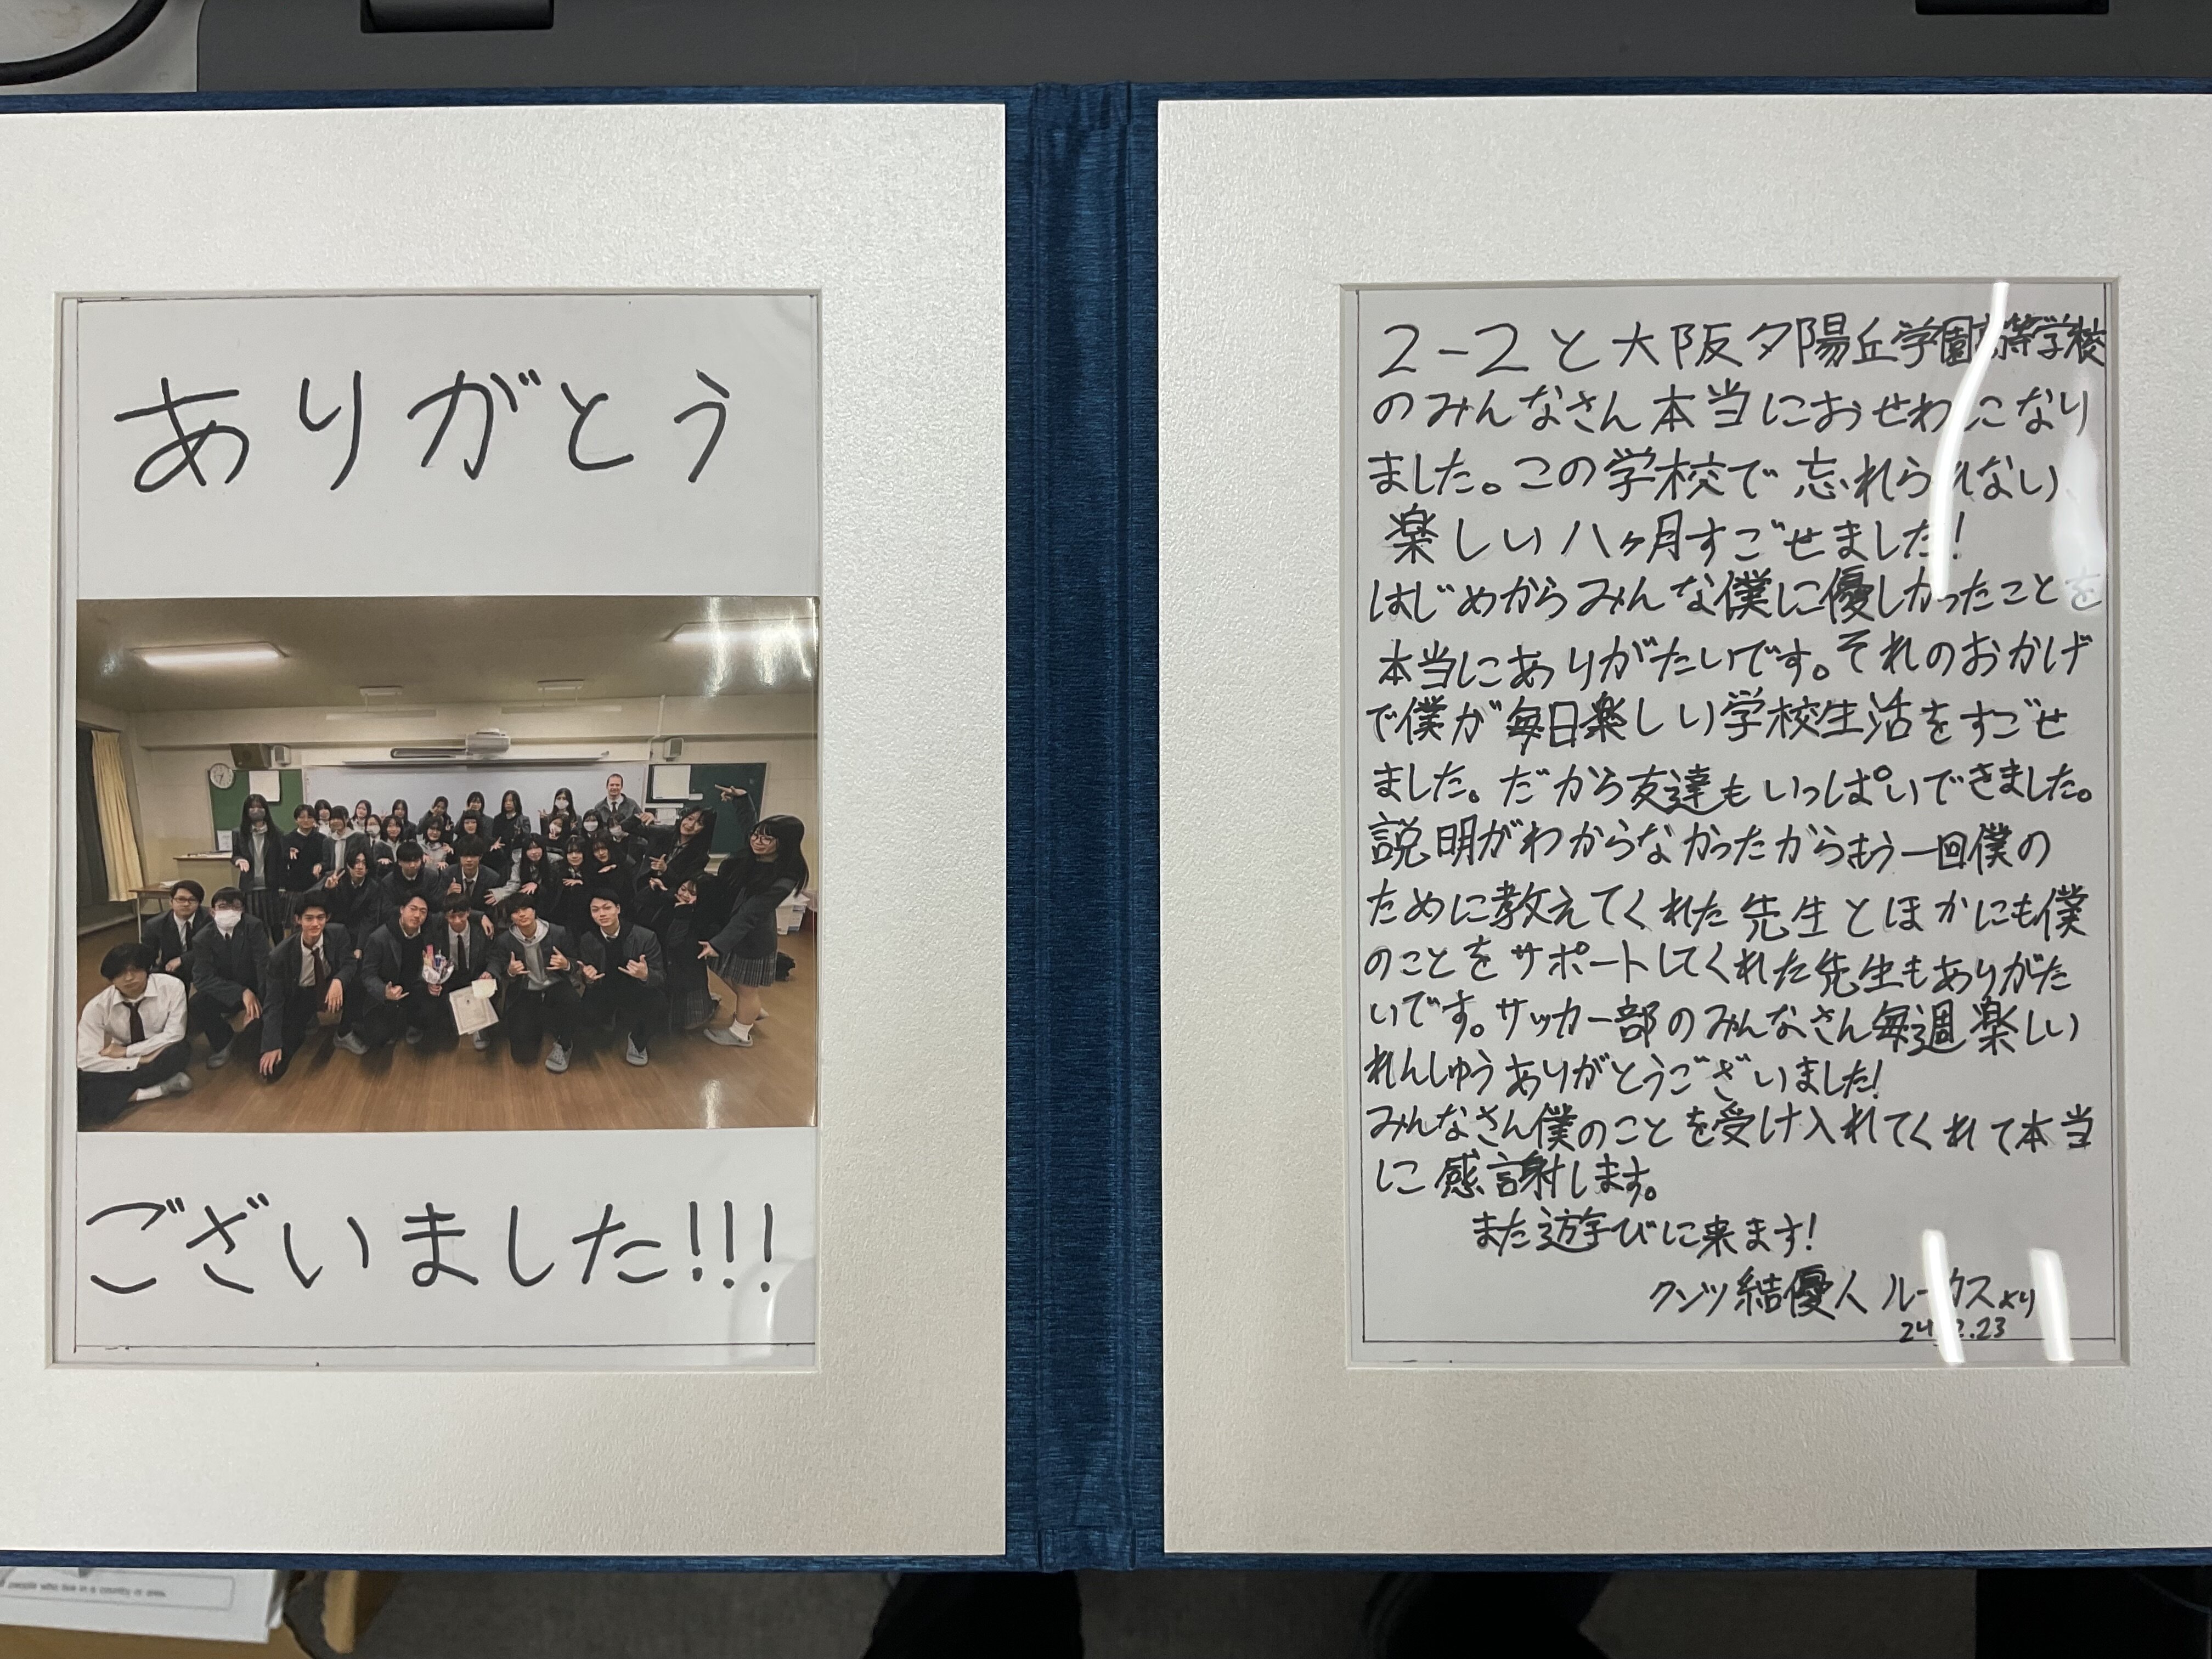 ありがとう
ございました!!!
2-2と大阪夕陽丘学園高等学校
のみんなさん本当におせわになり
ました。この学校で忘れられない
楽しい八ヶ月すごせました!
はじめからみんな僕に優しかったことを
本当にありがたいです。それのおかげ
で僕が毎日楽しい学校生活をすごせ
ました。だから友達もいっぱいできました。
説明がわからなかったからもう一回僕の
ために教えてくれた先生とほかにも僕
のことをサポートしてくれた先生もありがた
いです。サッカー部のみんなさん毎週楽しい
れんしゅうありがとうございました!
みんなさん僕のことを受け入れてくれて本当
に感謝します。
また遊びに来ます!
クンツ結優人 ルーカスより
people who live in a country or area.